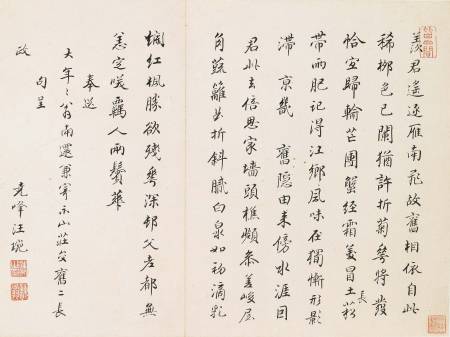 羨君遙逐雁南飛故舊相依自此
稀柳色已闌猶許折菊英將發
恰宜歸輪芒團蟹經霜美冒土長菘
帶雨肥記得江鄉風味在獨慚形影
滯京畿 舊隱由來傍水涯因
君此去倍思家墻頭樵參差峻屋
角蔬籬曲折斜臘白泉如初滴乳
爛紅楓勝欲殘花深邨父老都無
恙定嘆羇人兩鬢華
奉送
大年年翁南還兼寄示山莊父舊二長
句呈
政
堯峰汪琬